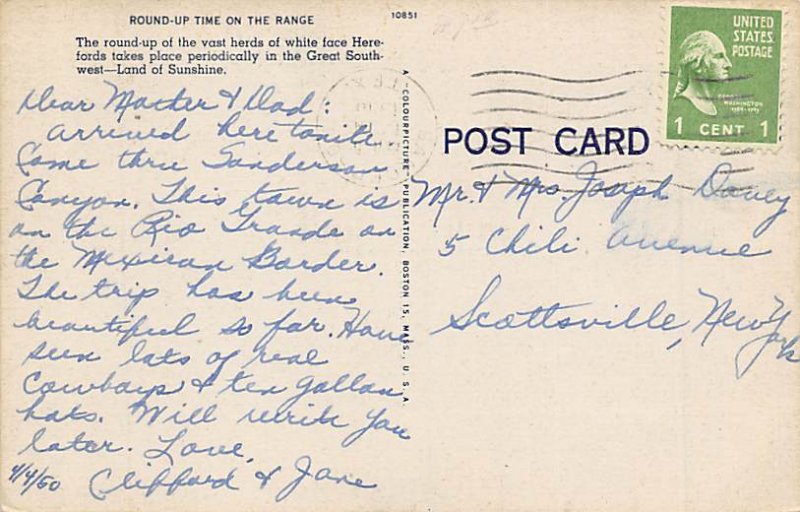 ROUND-UP TIME ON THE RANGE
10851
The round-up of the vast herds of white face Here-
fords takes place periodically in the Great South-
west—Land of Sunshine.
Dear Mother & Dad:
Arrived here tonite.
Came thru Sanderson
Canyon. This town is
on the Rio Grande on
the Mexican Border.
The trip has been
beautiful so far. Have
seen lots of real
Cowboys & ten gallon
hats. Will write you
later. Love,
4/4/50 Clifford & Jane
A "COLOURPICTURE" PUBLICATION, BOSTON 15, MASS., U.S.A.
UNITED
STATES
POSTAGE
GEORGE
WASHINGTON
1 CENT 1
POST CARD
Mr. & Mrs. Joseph Davey
5 Chili Avenue
Scottsville, New York